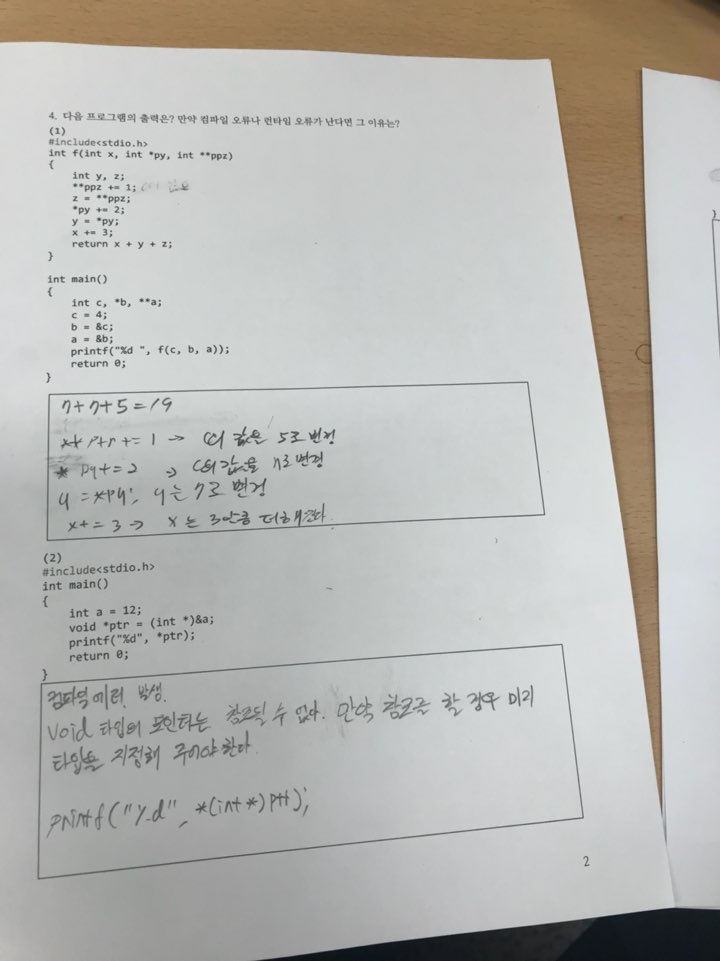 4. 다음 프로그램의 출력은? 만약 컴파일 오류나 런타임 오류가 난다면 그 이유는?
(1)
#include<stdio.h>
int f(int x, int *py, int **ppz)
{
int y, z;
**ppz += 1;
z = **ppz;
*py += 2;
y = *py;
x += 3;
return x + y + z;
}
int main()
{
int c, *b, **a;
c = 4;
b = &c;
a = &b;
printf("%d ", f(c, b, a));
return 0;
}
7+7+5=19
+= 1 → c의 값은 5로 변경
* py += 2 → c의 값을 7로 변경
y = *py; y는 7로 변경
x += 3 → x는 3만큼 더해진다.
(2)
#include<stdio.h>
int main()
{
int a = 12;
void *ptr = (int *)&a;
printf("%d", *ptr);
return 0;
}
컴파일 에러 발생.
void 타입의 포인터는 참조될 수 없다. 만약 참조를 할 경우 미리
타입을 지정해 주어야 한다.
printf("%d", *(int *)ptr);
2